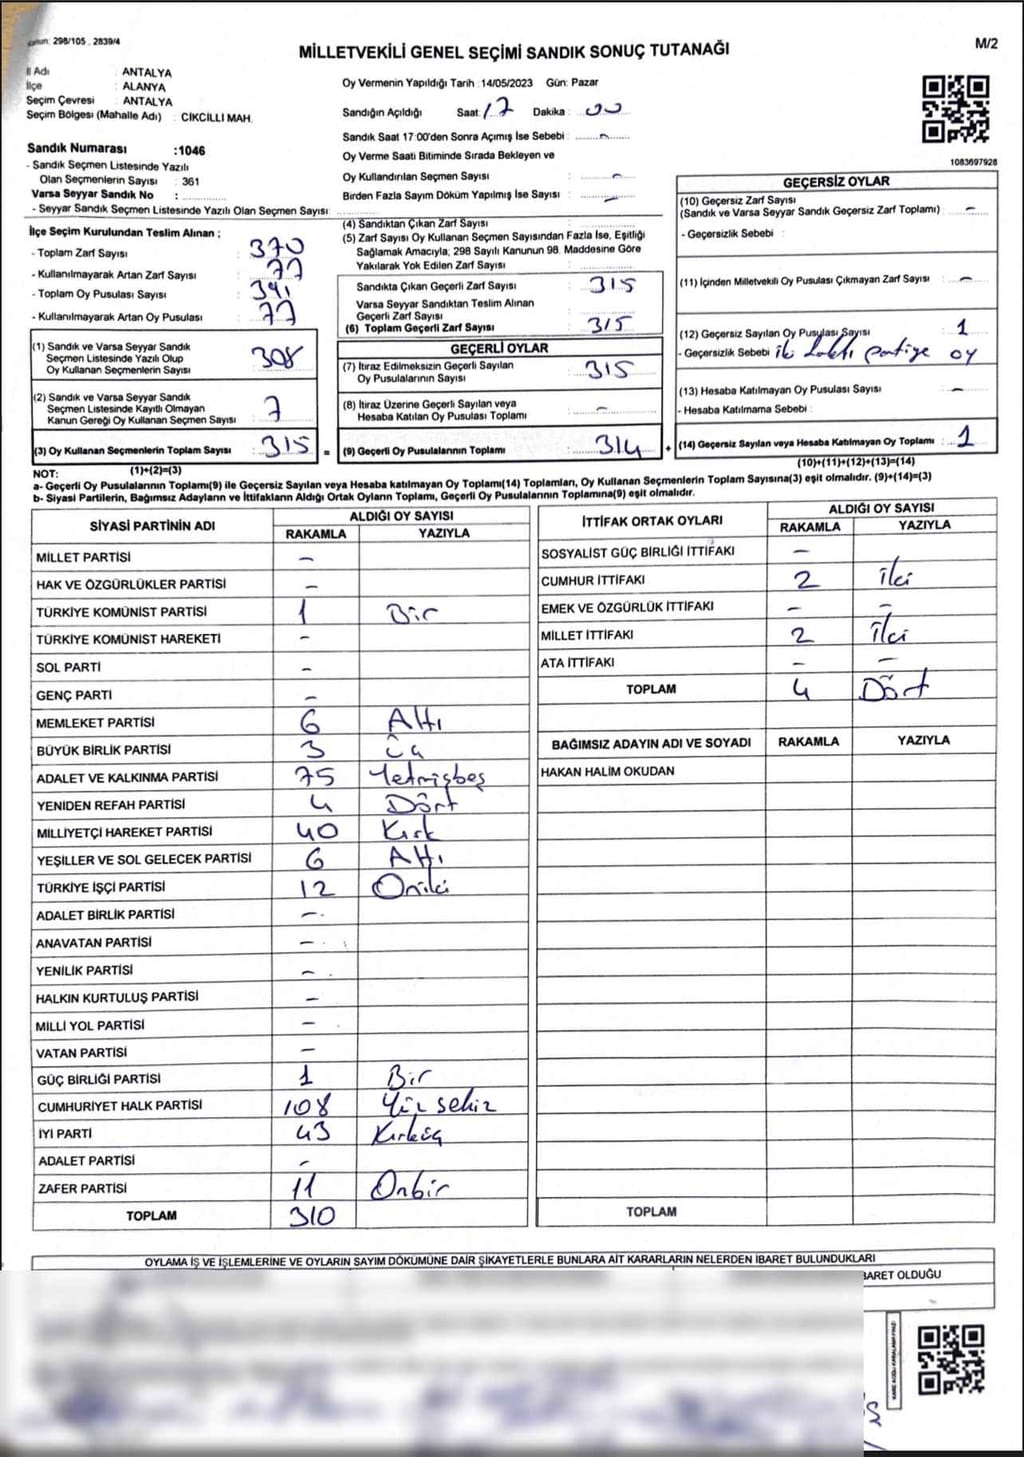 Kanun: 298/105 , 2839/4
MİLLETVEKİLİ GENEL SEÇİMİ SANDIK SONUÇ TUTANAĞI
M/2
İl Adı : ANTALYA
İlçe : ALANYA
Seçim Çevresi : ANTALYA
Seçim Bölgesi (Mahalle Adı) : CİKCİLLİ MAH.
Sandık Numarası :1046
- Sandık Seçmen Listesinde Yazılı
Olan Seçmenlerin Sayısı : 361
Varsa Seyyar Sandık No :
- Seyyar Sandık Seçmen Listesinde Yazılı Olan Seçmen Sayısı:
Oy Vermenin Yapıldığı Tarih :14/05/2023 Gün: Pazar
Sandığın Açıldığı Saat: 17 Dakika : 00
Sandık Saat 17:00'den Sonra Açımış İse Sebebi : -
Oy Verme Saati Bitiminde Sırada Bekleyen ve
Oy Kullandırılan Seçmen Sayısı : -
Birden Fazla Sayım Döküm Yapılmış İse Sayısı : -
1083697928
İlçe Seçim Kurulundan Teslim Alınan ;
- Toplam Zarf Sayısı : 370
- Kullanılmayarak Artan Zarf Sayısı : 77
- Toplam Oy Pusulası Sayısı :
- Kullanılmayarak Artan Oy Pusulası : 77
(1) Sandık ve Varsa Seyyar Sandık
Seçmen Listesinde Yazılı Olup
Oy Kullanan Seçmenlerin Sayısı : 308
(2) Sandık ve Varsa Seyyar Sandık
Seçmen Listesinde Kayıtlı Olmayan
Kanun Gereği Oy Kullanan Seçmen Sayısı : 7
(3) Oy Kullanan Seçmenlerin Toplam Sayısı : 315 =
(4) Sandıktan Çıkan Zarf Sayısı :
(5) Zarf Sayısı Oy Kullanan Seçmen Sayısından Fazla İse, Eşitliği
Sağlamak Amacıyla; 298 Sayılı Kanunun 98. Maddesine Göre
Yakılarak Yok Edilen Zarf Sayısı :
Sandıkta Çıkan Geçerli Zarf Sayısı : 315
Varsa Seyyar Sandıktan Teslim Alınan
Geçerli Zarf Sayısı :
(6) Toplam Geçerli Zarf Sayısı : 315
GEÇERLİ OYLAR
(7) İtiraz Edilmeksizin Geçerli Sayılan
Oy Pusulalarının Sayısı : 315
(8) İtiraz Üzerine Geçerli Sayılan veya
Hesaba Katılan Oy Pusulası Toplamı : -
(9) Geçerli Oy Pusulalarının Toplamı : 314 +
GEÇERSİZ OYLAR
(10) Geçersiz Zarf Sayısı
(Sandık ve Varsa Seyyar Sandık Geçersiz Zarf Toplamı) : -
- Geçersizlik Sebebi :
(11) İçinden Milletvekili Oy Pusulası Çıkmayan Zarf Sayısı : -
(12) Geçersiz Sayılan Oy Pusulası Sayısı : 1
- Geçersizlik Sebebi : iki partiye oy
(13) Hesaba Katılmayan Oy Pusulası Sayısı : -
- Hesaba Katılmama Sebebi :
(14) Geçersiz Sayılan veya Hesaba Katılmayan Oy Toplamı : 1
NOT: (1)+(2)=(3)
(10)+(11)+(12)+(13)=(14)
a- Geçerli Oy Pusulalarının Toplamı(9) ile Geçersiz Sayılan veya Hesaba katılmayan Oy Toplamı(14) Toplamları, Oy Kullanan Seçmenlerin Toplam Sayısına(3) eşit olmalıdır. (9)+(14)=(3)
b- Siyasi Partilerin, Bağımsız Adayların ve İttifakların Aldığı Ortak Oyların Toplamı, Geçerli Oy Pusulalarının Toplamına(9) eşit olmalıdır.
SİYASİ PARTİNİN ADI
ALDIĞI OY SAYISI
RAKAMLA YAZIYLA
MİLLET PARTİSİ -
HAK VE ÖZGÜRLÜKLER PARTİSİ -
TÜRKİYE KOMÜNİST PARTİSİ 1 Bir
TÜRKİYE KOMÜNİST HAREKETİ -
SOL PARTİ -
GENÇ PARTİ -
MEMLEKET PARTİSİ 6 Altı
BÜYÜK BİRLİK PARTİSİ 3 Üç
ADALET VE KALKINMA PARTİSİ 75 Yetmişbeş
YENİDEN REFAH PARTİSİ 4 Dört
MİLLİYETÇİ HAREKET PARTİSİ 40 Kırk
YEŞİLLER VE SOL GELECEK PARTİSİ 6 Altı
TÜRKİYE İŞÇİ PARTİSİ 12 Oniki
ADALET BİRLİK PARTİSİ -
ANAVATAN PARTİSİ -
YENİLİK PARTİSİ -
HALKIN KURTULUŞ PARTİSİ -
MİLLİ YOL PARTİSİ -
VATAN PARTİSİ -
GÜÇ BİRLİĞİ PARTİSİ 1 Bir
CUMHURİYET HALK PARTİSİ 108 Yüz sekiz
İYİ PARTİ 43 Kırküç
ADALET PARTİSİ -
ZAFER PARTİSİ 11 Onbir
TOPLAM 310
İTTİFAK ORTAK OYLARI
ALDIĞI OY SAYISI
RAKAMLA YAZIYLA
SOSYALİST GÜÇ BİRLİĞİ İTTİFAKI -
CUMHUR İTTİFAKI 2 İki
EMEK VE ÖZGÜRLÜK İTTİFAKI - -
MİLLET İTTİFAKI 2 İki
ATA İTTİFAKI - -
TOPLAM 4 Dört
BAĞIMSIZ ADAYIN ADI VE SOYADI RAKAMLA YAZIYLA
HAKAN HALİM OKUDAN
TOPLAM
OYLAMA İŞ VE İŞLEMLERİNE VE OYLARIN SAYIM DÖKÜMÜNE DAİR ŞİKAYETLERLE BUNLARA AİT KARARLARIN NELERDEN İBARET BULUNDUKLARI
BARET OLDUĞU